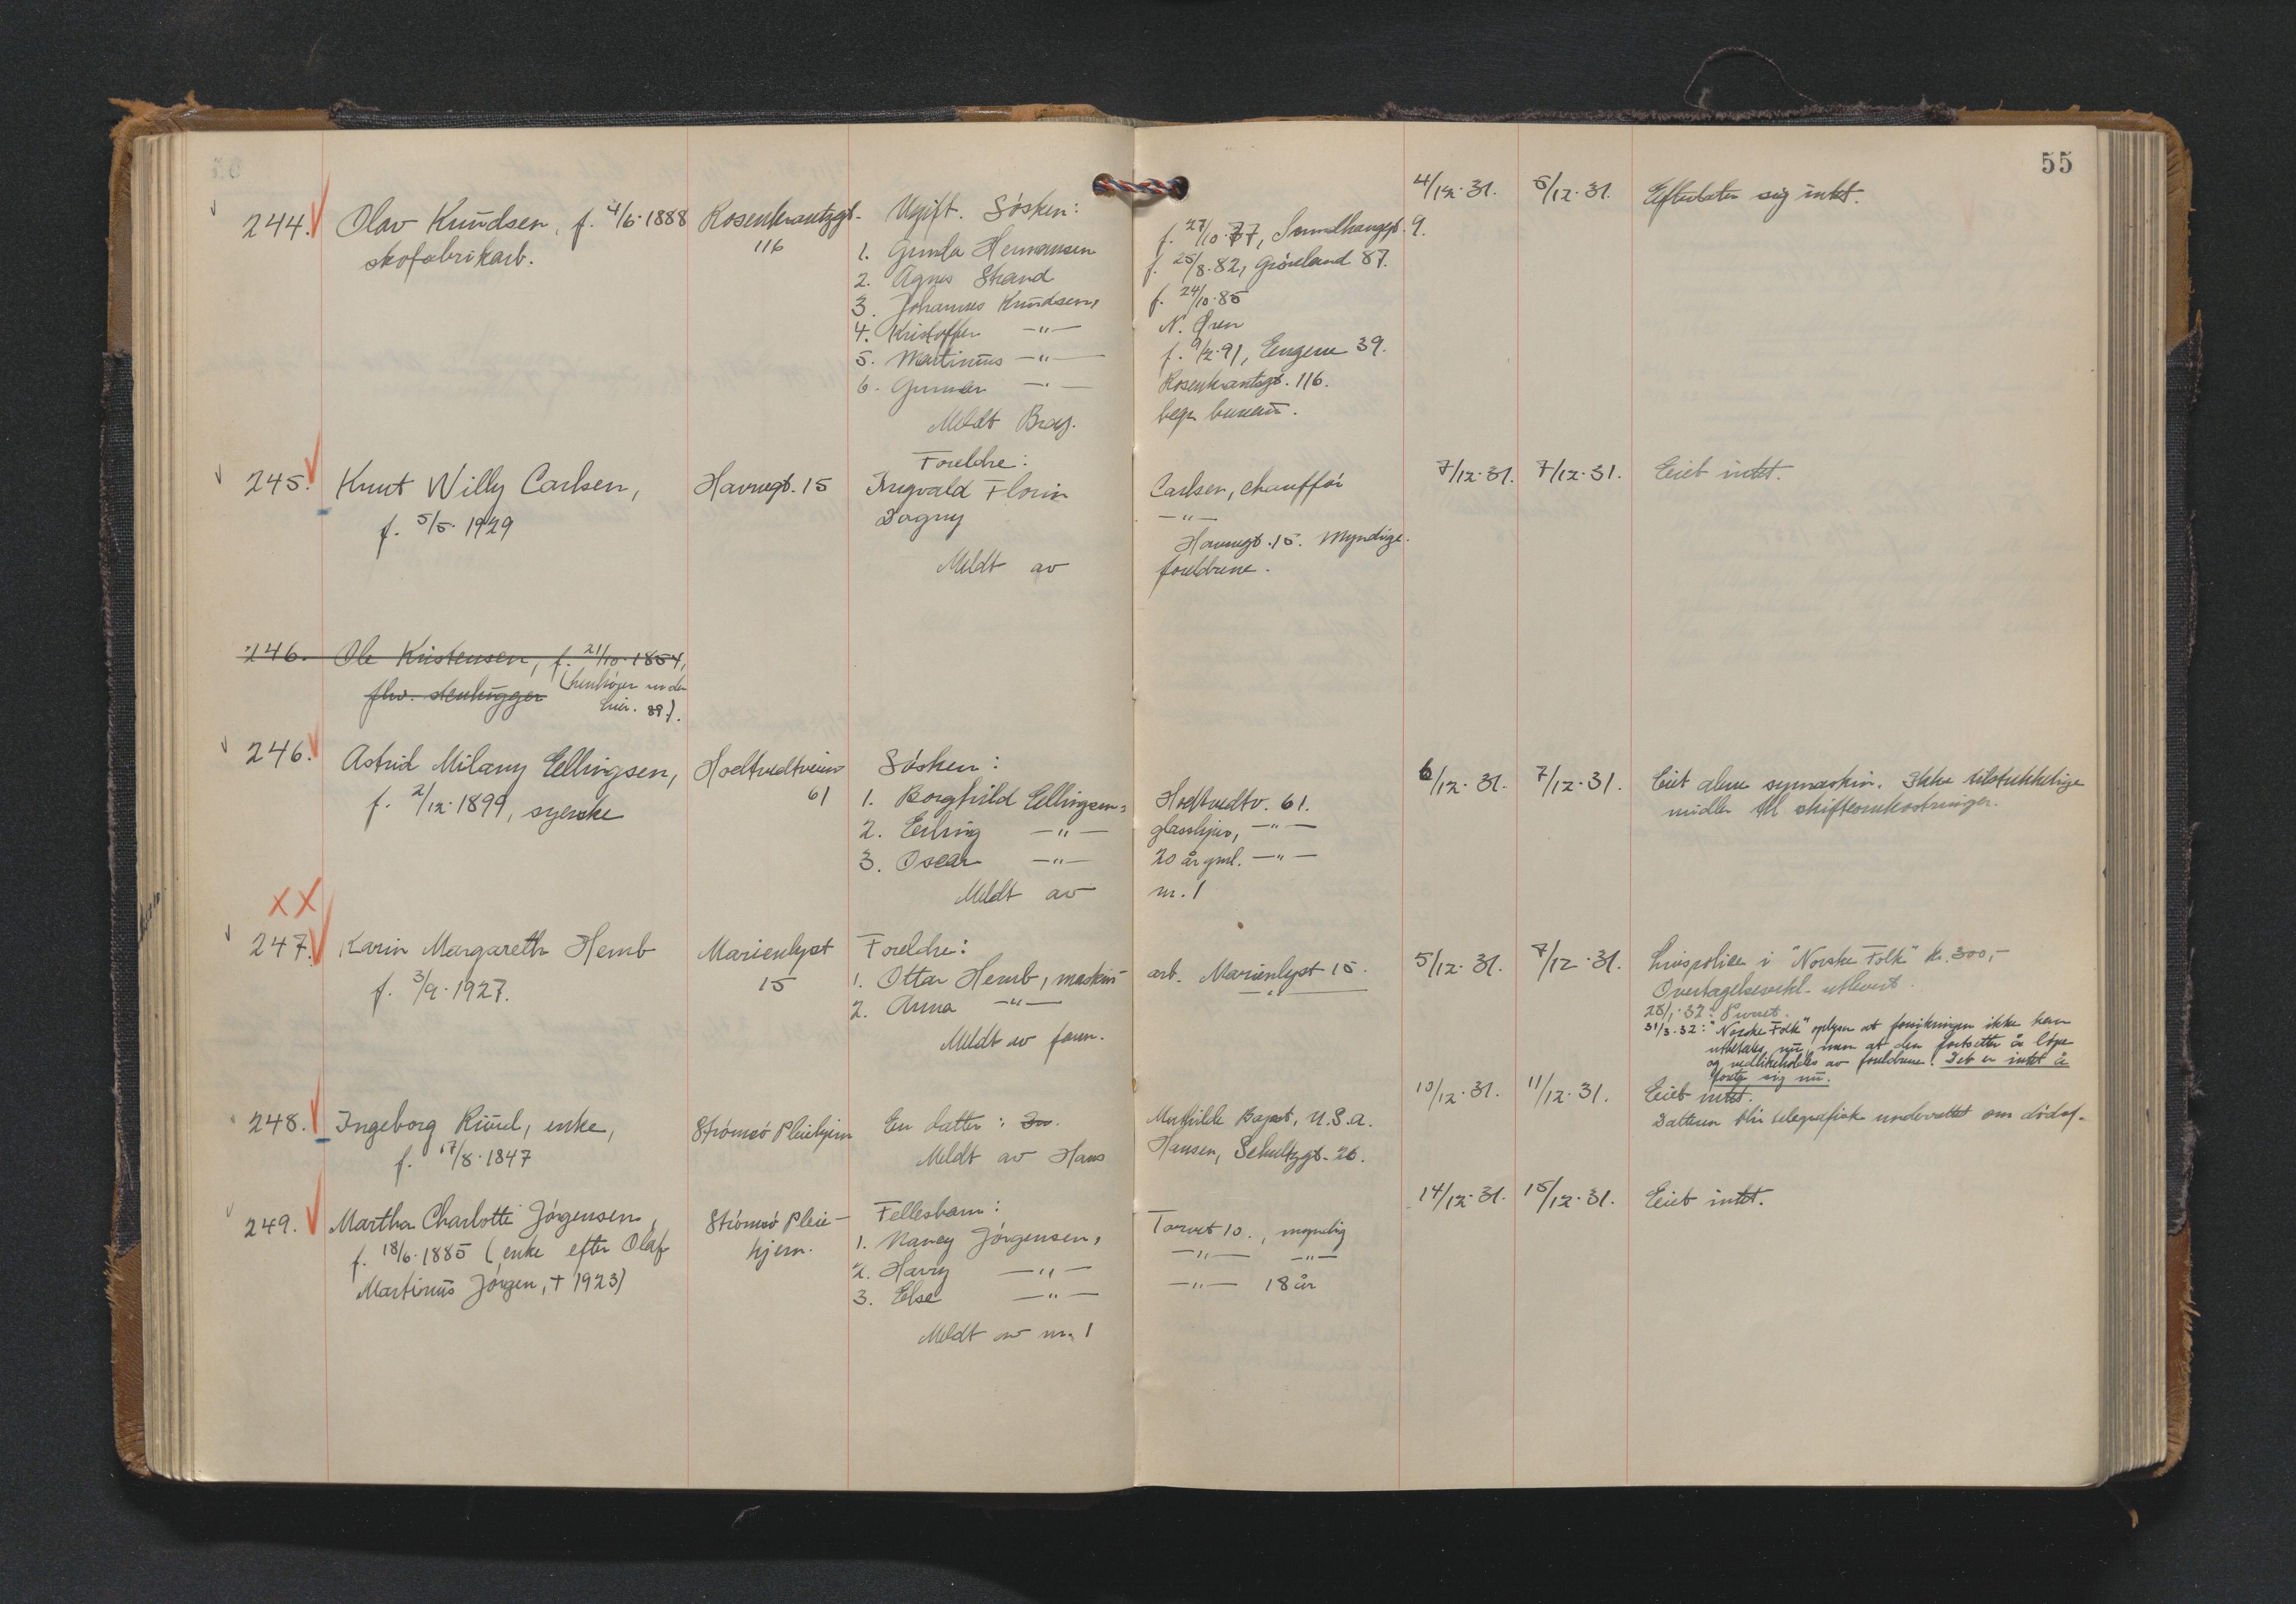 55
244. Olav Knudsen, f. 4/6·1888 Rosenkrantzgt. Ugift. Søsken: 4/12·31. 5/12·31. Efterlater sig intet.
skofabrikarb. 116
1. Gunda Hermansen f. 27/10·77, 9.
2. Agnes Strand f. 25/8·82, Grønland 87.
3. Johannes Knudsen, f. 24/10·85
4. Kristoffer —"— N. Øren
5. Martinus —"— f. 9/2·91, Engene 39.
6. Gunnar —"— Rosenkrantzgt. 116.
Meldt Brag. begr. bureau.
245. Knut Willy Carlsen, Havnegt. 15 Foreldre: 7/12·31. 7/12·31. Eiet intet.
f. 5/5·1929 Ingvald Florin Carlsen, chauffør
Dagny —"—
Havnegt. 15. Myndige.
Meldt av foreldrene.
246. Ole Kristensen, f. 21/10·1854,
fhv. stenhugger (henhører under
Lier. 89).
246. Astrid Milany Ellingsen, Hoeltvedtveien Søsken: 6/12·31. 7/12·31. Eiet alene symaskin. Ikke tilstrekkelige
f. 2/12·1899, syerske 61 midler til skifteomkostninger.
1. Borghild Ellingsen, Hoeltvedtv. 61.
2. Erling —"— glasshjem, —"—
3. Oscar —"— 20 år gml. —"—
Meldt av nr. 1
XX
247. Karin Margareth Hemb Marienlyst Foreldre: 5/12·31. 7/12·31. Livspolice i "Norske Folk" kr. 300,-
f. 3/9·1927. 15 Overtagelseserkl. utlevert.
1. Ottar Hemb, maskin- arb. Marienlyst 15.
2. Anna —"— —"—
Meldt av faren.
28/1·32: Purret.
31/3·32: "Norske Folk" oplyser at forsikringen ikke kan
utbetales nu, men at den fortsetter å løpe
og vedlikeholdes av foreldrene. Det er intet å
foreta sig nu.
248. Ingeborg Ruud, enke, Strømsø Pleiehjem En datter: Mathilde Bapst, U.S.A. 10/12·31. 11/12·31. Eiet intet.
f. 17/8·1847 Meldt av Hans Hansen, Schultzgt. 26. Datteren blir telegrafisk underrettet om dødsf.
249. Martha Charlotte Jørgensen, Strømsø Pleie- Fellesbarn: 14/12·31. 15/12·31. Eiet intet.
f. 18/6·1885 (enke efter Olaf hjem.
Martinus Jørgen, † 1923)
1. Nancy Jørgensen, Torvet 10., myndig
2. Harry —"— —"— —"—
3. Else —"— —"— 18 år
Meldt av nr. 1